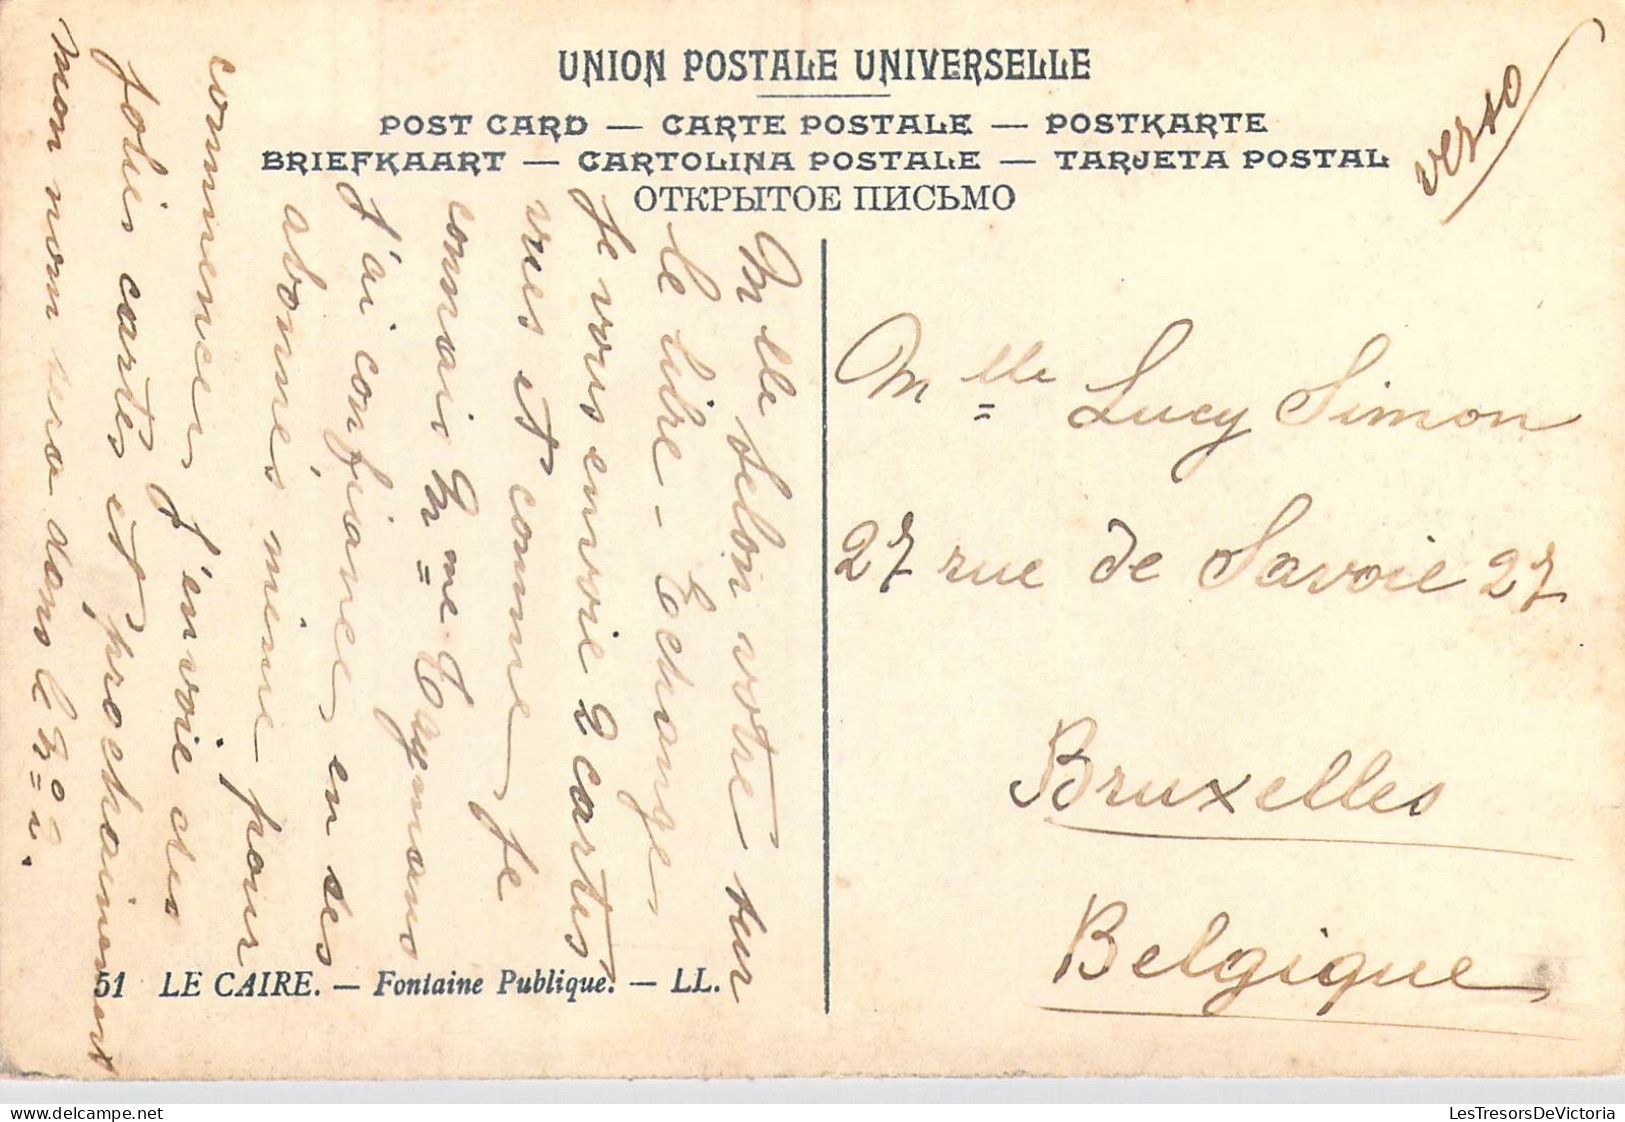 UNION POSTALE UNIVERSELLE
POST CARD — CARTE POSTALE — POSTKARTE
BRIEFKAART — CARTOLINA POSTALE — TARJETA POSTAL
ОТКРЫТОЕ ПИСЬМО
verso
Mlle selon votre sur
le libre-Echange
je vous envoie 2 cartes
vues et comme je
connais Mme Taymans
j'ai confiance en ses
abonnés même pour
commencer j'envoie des
jolies cartes et prochainement
mon nom sera dans le No 2.
Mlle Lucy Simon
27 rue de Savoie 27
Bruxelles
Belgique
51 LE CAIRE. — Fontaine Publique. — LL.
LesTresorsDeVictoria
delcampe.net